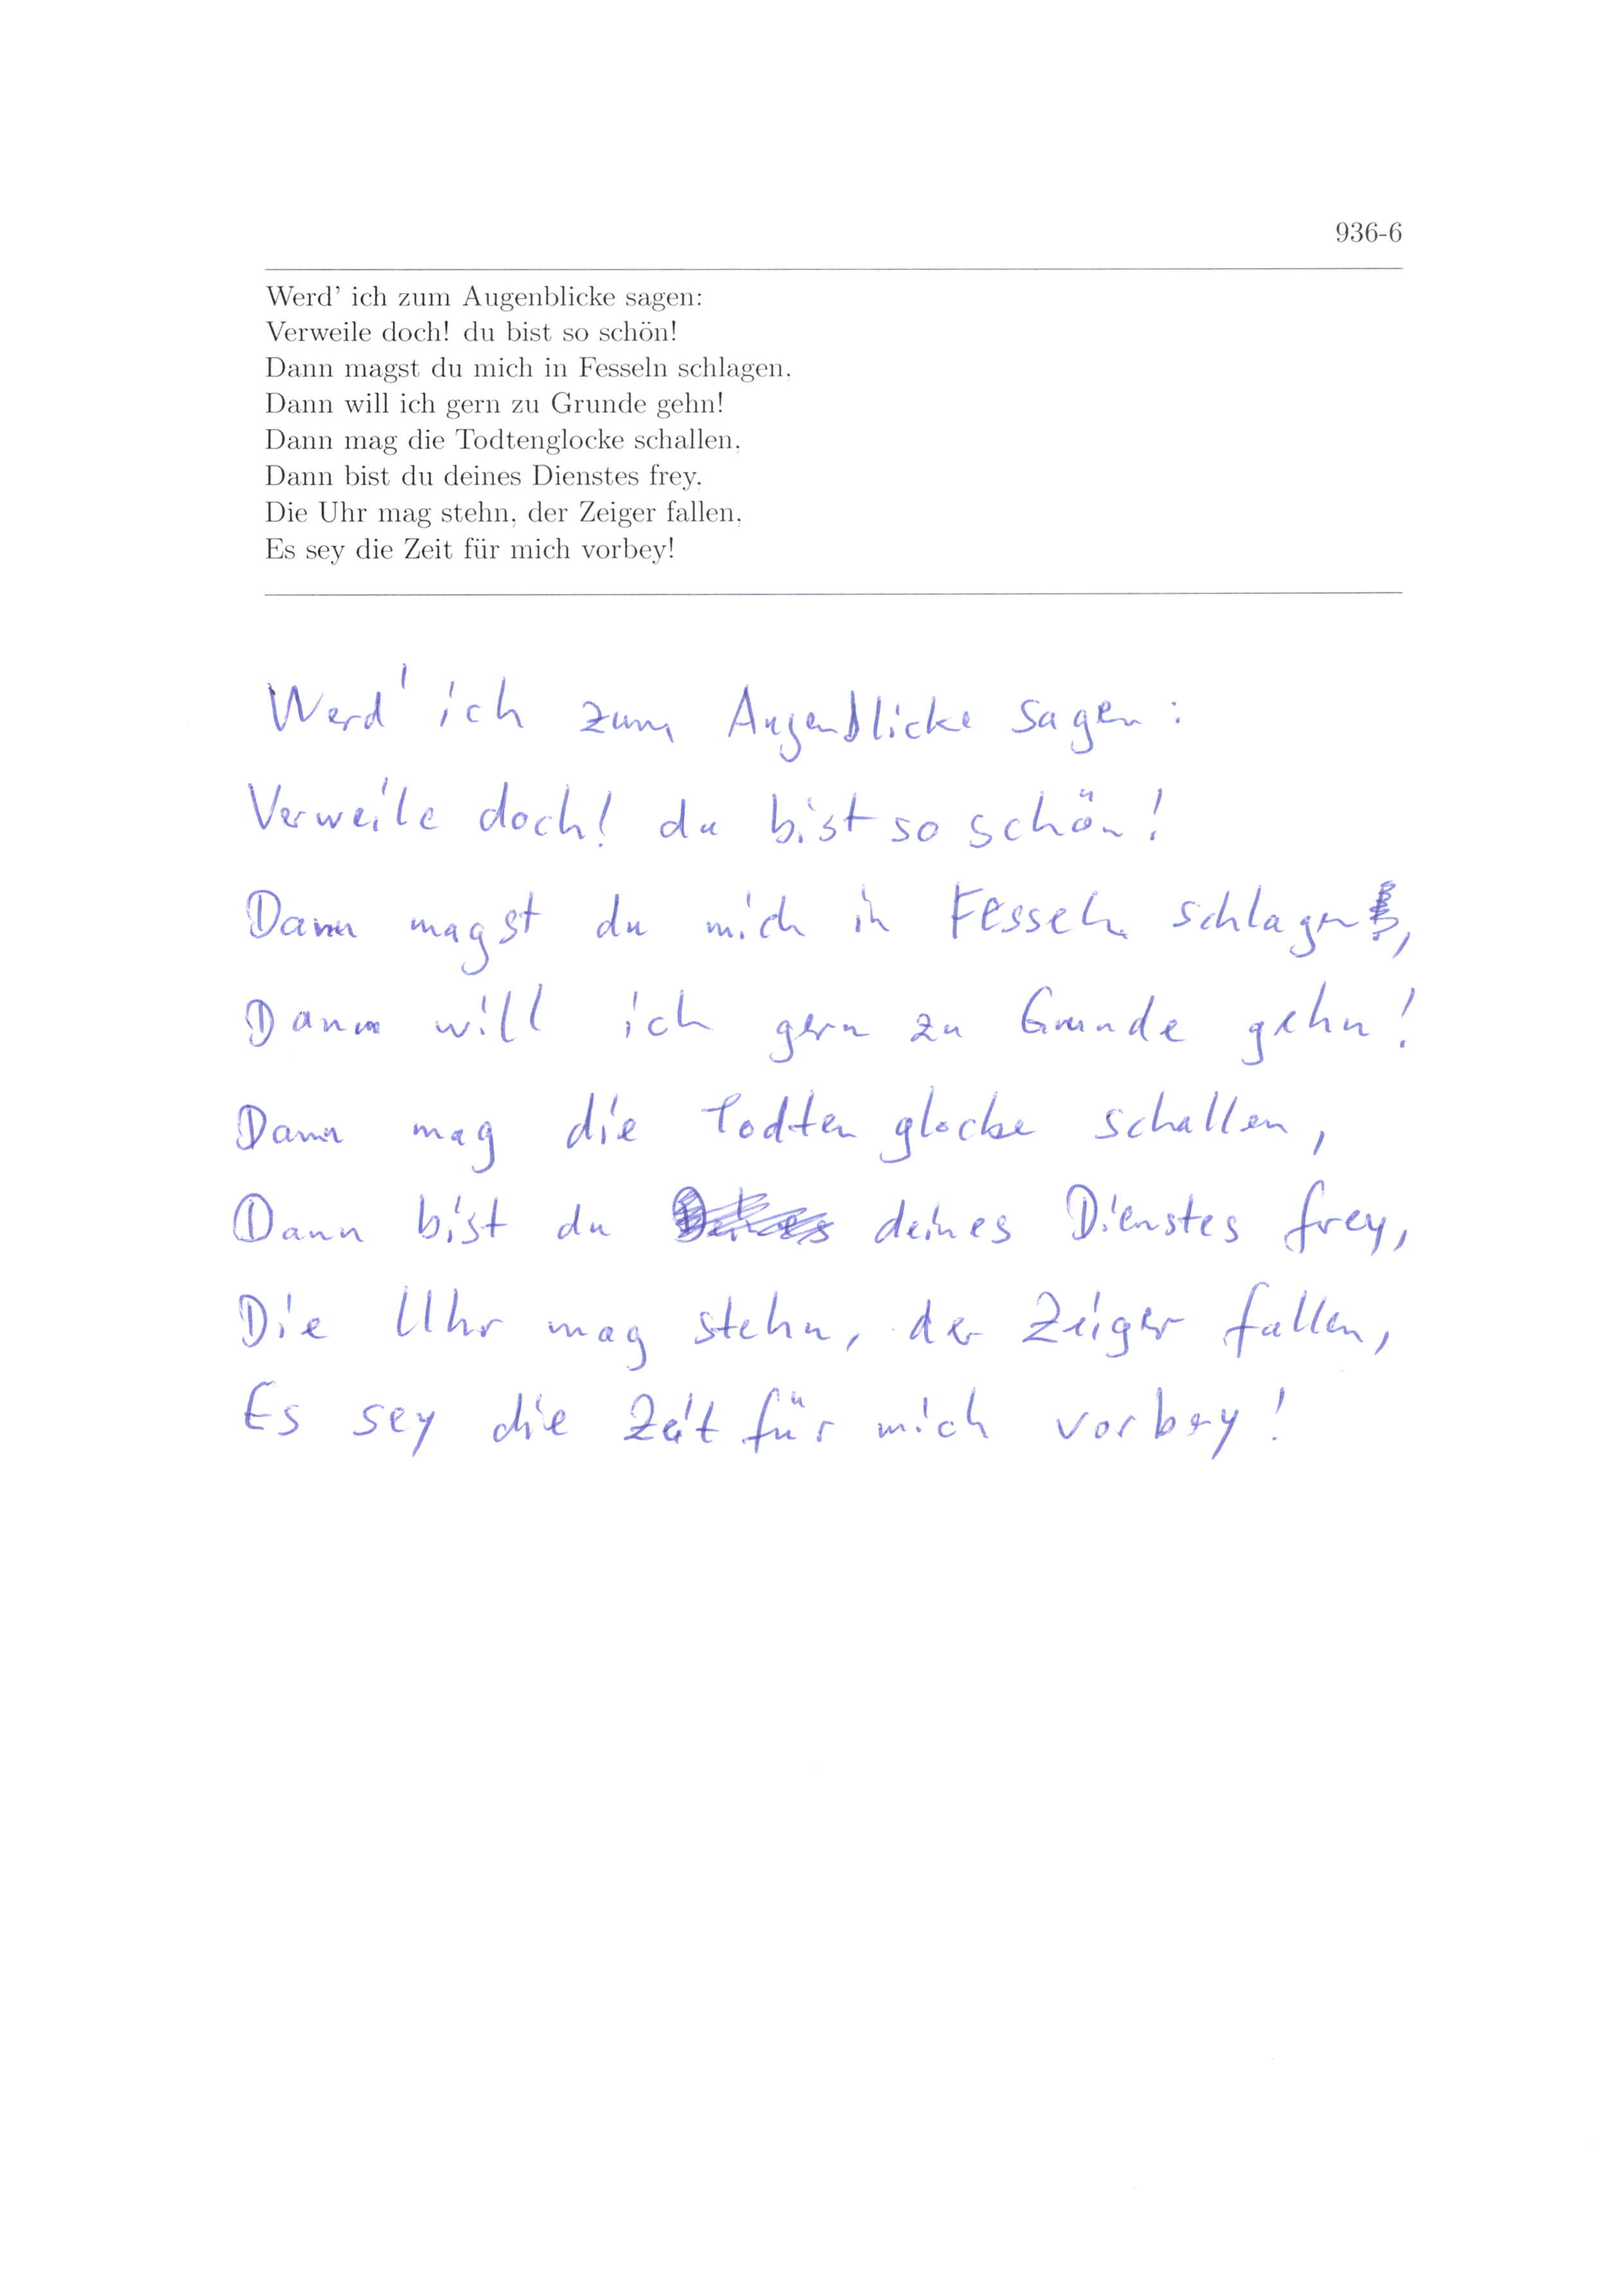 936-6
Werd' ich zum Augenblicke sagen:
Verweile doch! du bist so schön!
Dann magst du mich in Fesseln schlagen,
Dann will ich gern zu Grunde gehn!
Dann mag die Todtenglocke schallen,
Dann bist du deines Dienstes frey,
Die Uhr mag stehn, der Zeiger fallen,
Es sey die Zeit für mich vorbey!
Werd' ich zum Augenblicke sagen:
Verweile doch! du bist so schön!
Dann magst du mich in Fesseln schlagen,
Dann will ich gern zu Grunde gehn!
Dann mag die Todtenglocke schallen,
Dann bist du deines Dienstes frey,
Die Uhr mag stehn, der Zeiger fallen,
Es sey die Zeit für mich vorbey!